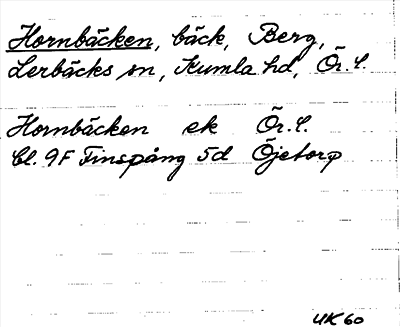 Hornbäcken, bäck, Berg,
Lerbäcks sn, Kumla hd, Ör. l.
Hornbäcken ek Ör. l.
bl. 9F Finspång 5d Öjetorp
UK 60